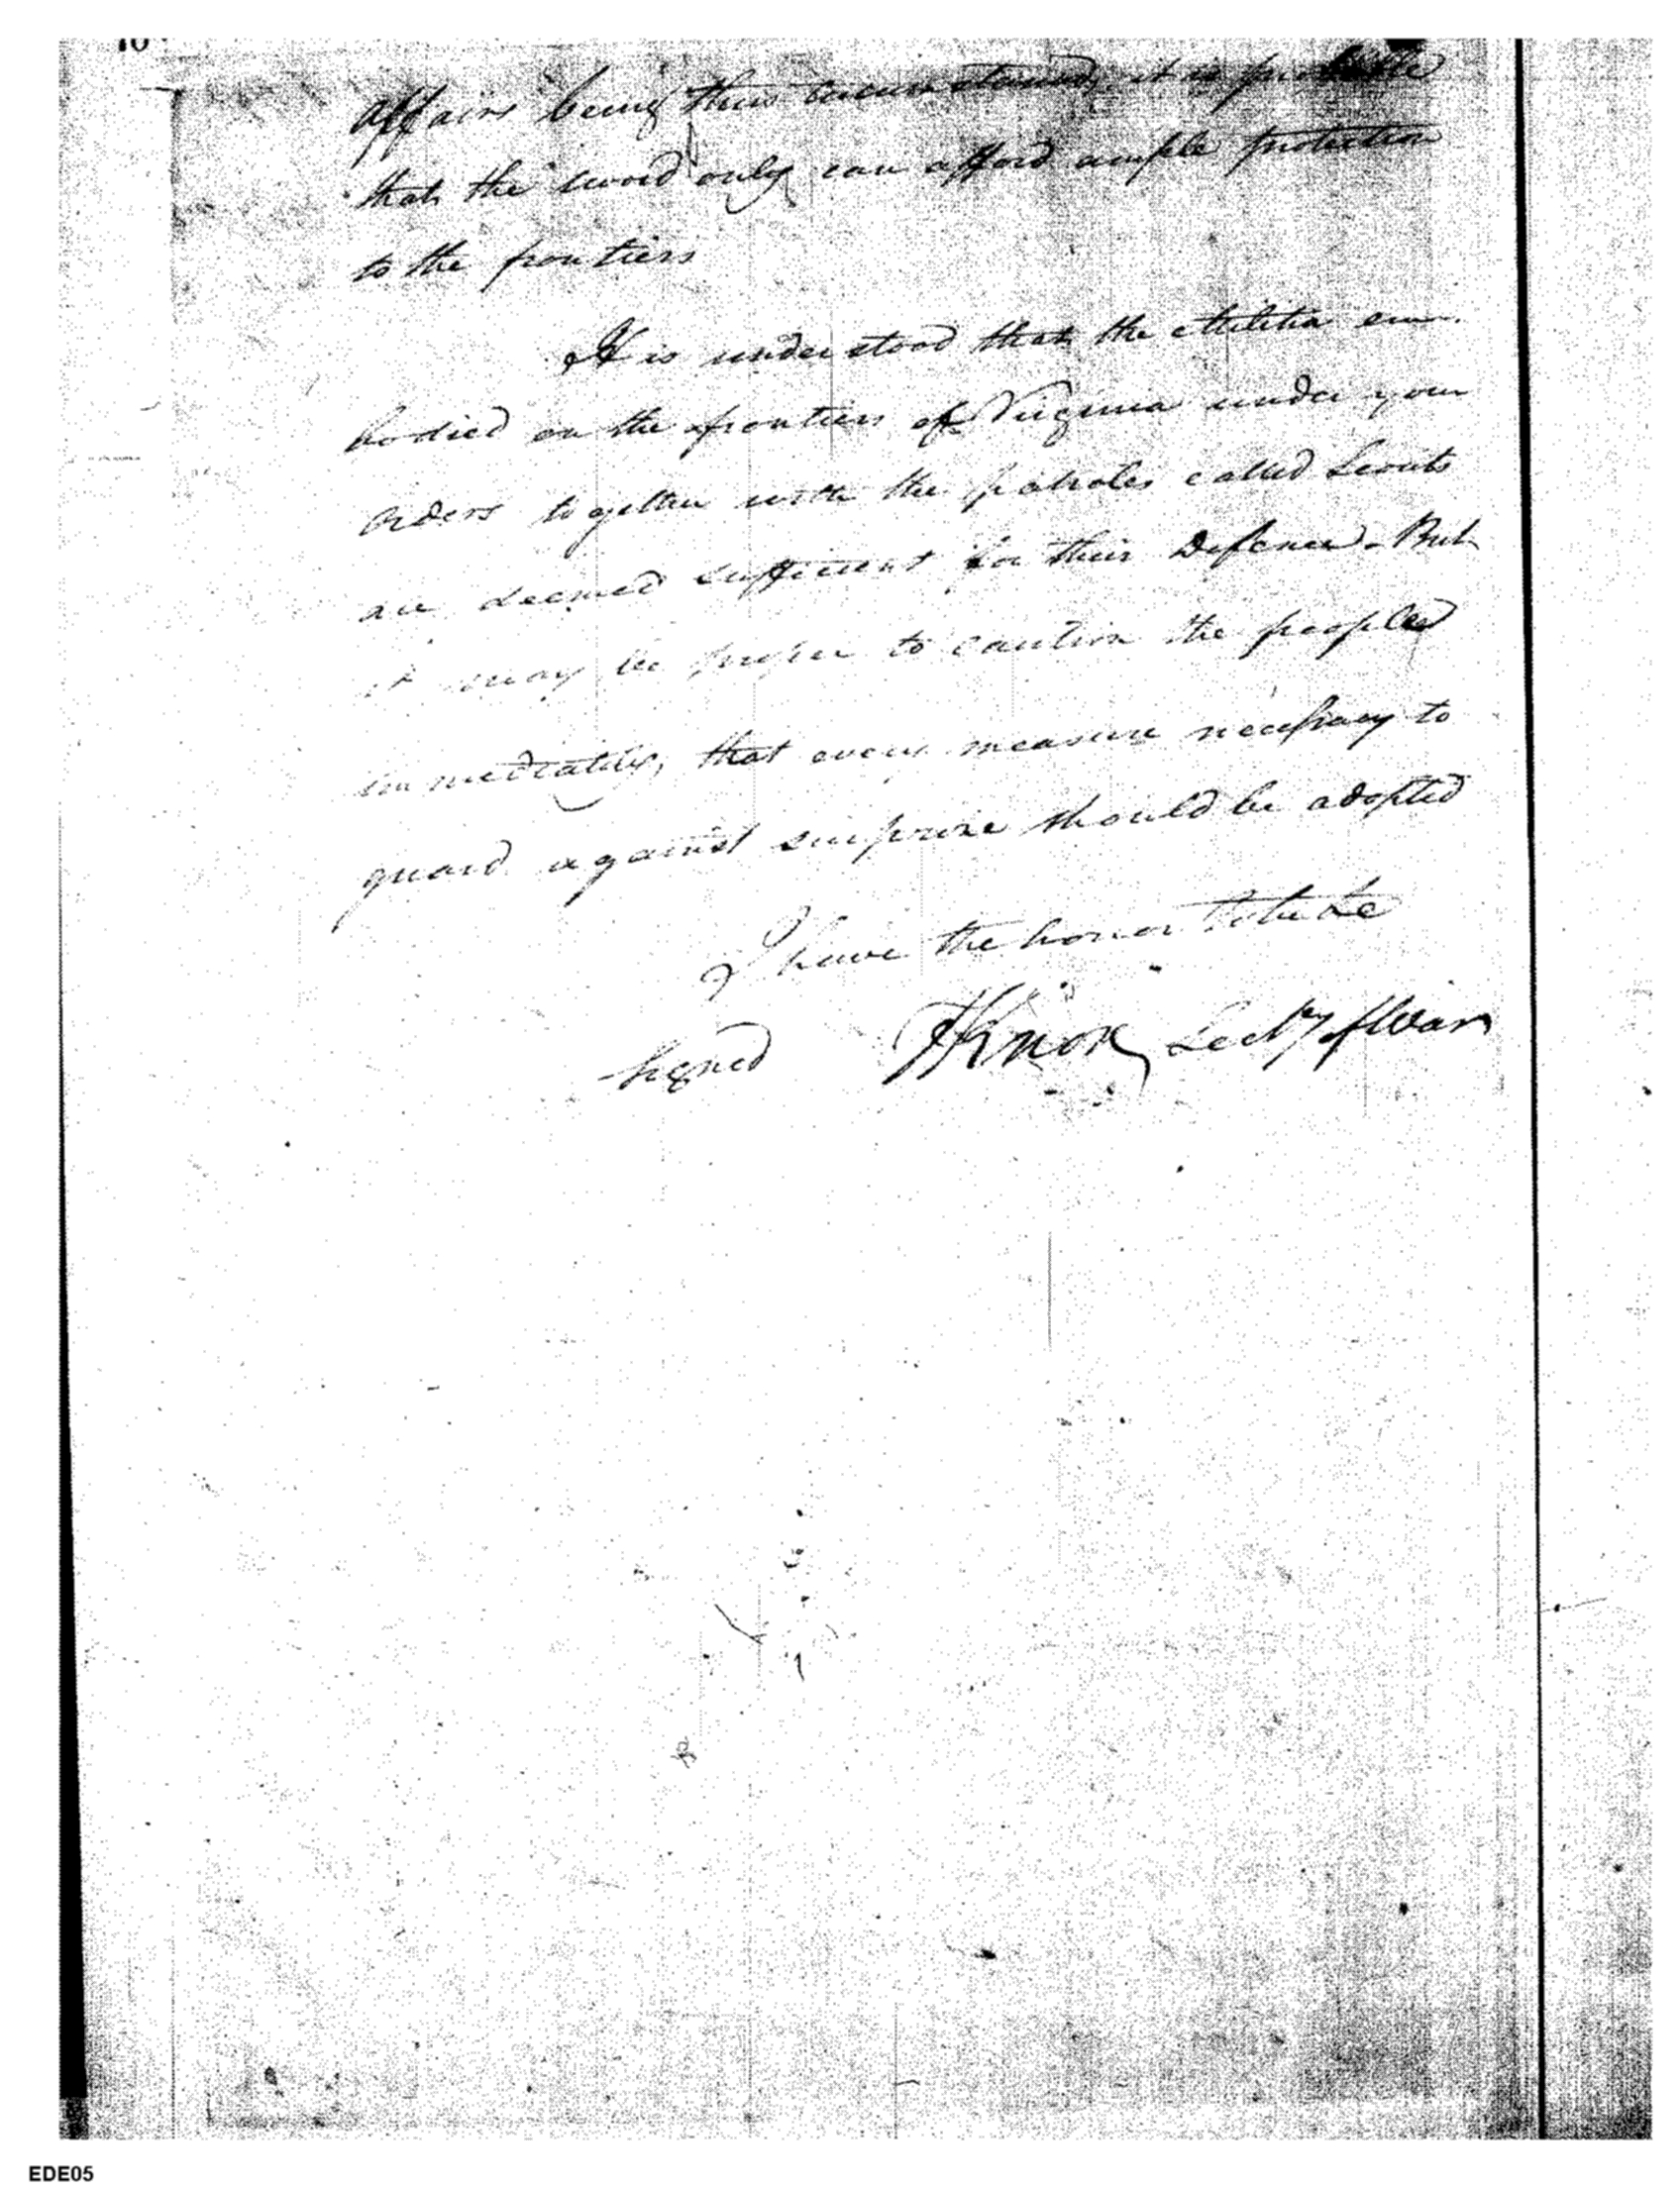 10
affairs being thus circumstanced, it is probable
that the sword only can afford ample protection
to the frontiers
It is understood that the Militia em-
bodied on the frontiers of Virginia under your
orders together with the patroles called Scouts
are deemed sufficient for their Defence - But
it may be proper to caution the people
immediately, that every measure necessary to
guard against surprize should be adopted
I have the honor to be &c
signed HKnox Secty of War
EDE05